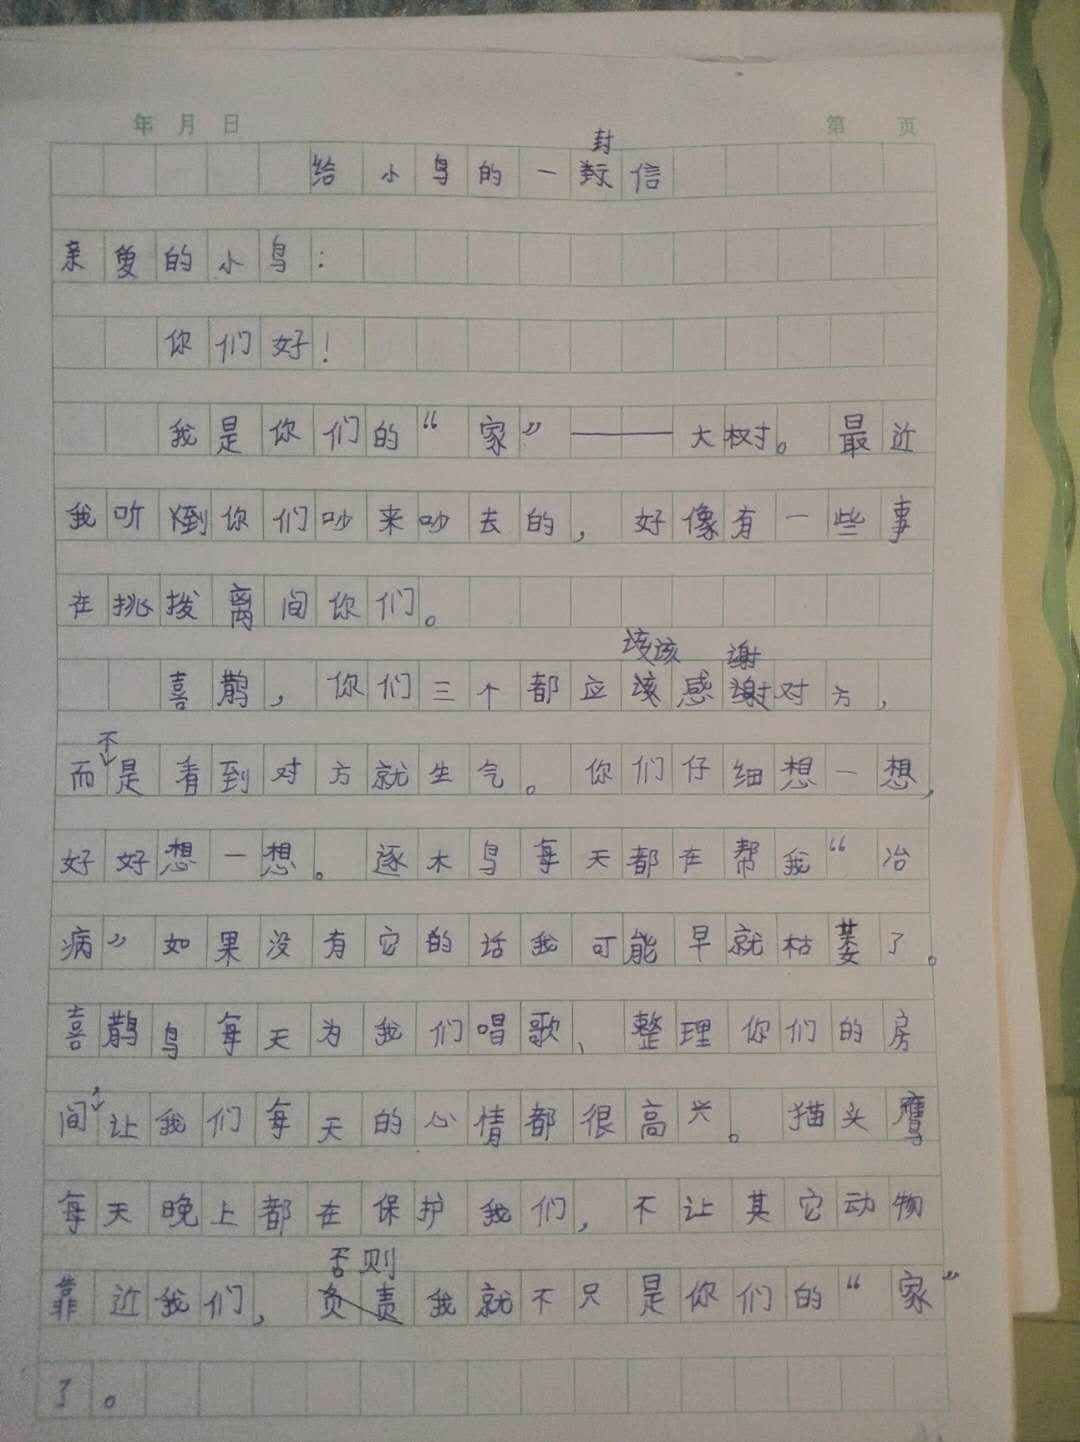 年 月 日 第 页
封
给小鸟的一封信
亲爱的小鸟：
你们好！
我是你们的“家”——大树。最近
我听到你们吵来吵去的，好像有一些事
在挑拨离间你们。
该该 谢
喜鹊，你们三个都应该感谢对方，
不
而是看到对方就生气。你们仔细想一想，
好好想一想。逐木鸟每天都在帮我“冶
病”如果没有它的话我可能早就枯萎了。
喜鹊鸟每天为我们唱歌、整理你们的房
间，让我们每天的心情都很高兴。猫头鹰
每天晚上都在保护我们，不让其它动物
否则
靠近我们，负责我就不只是你们的“家”
了。